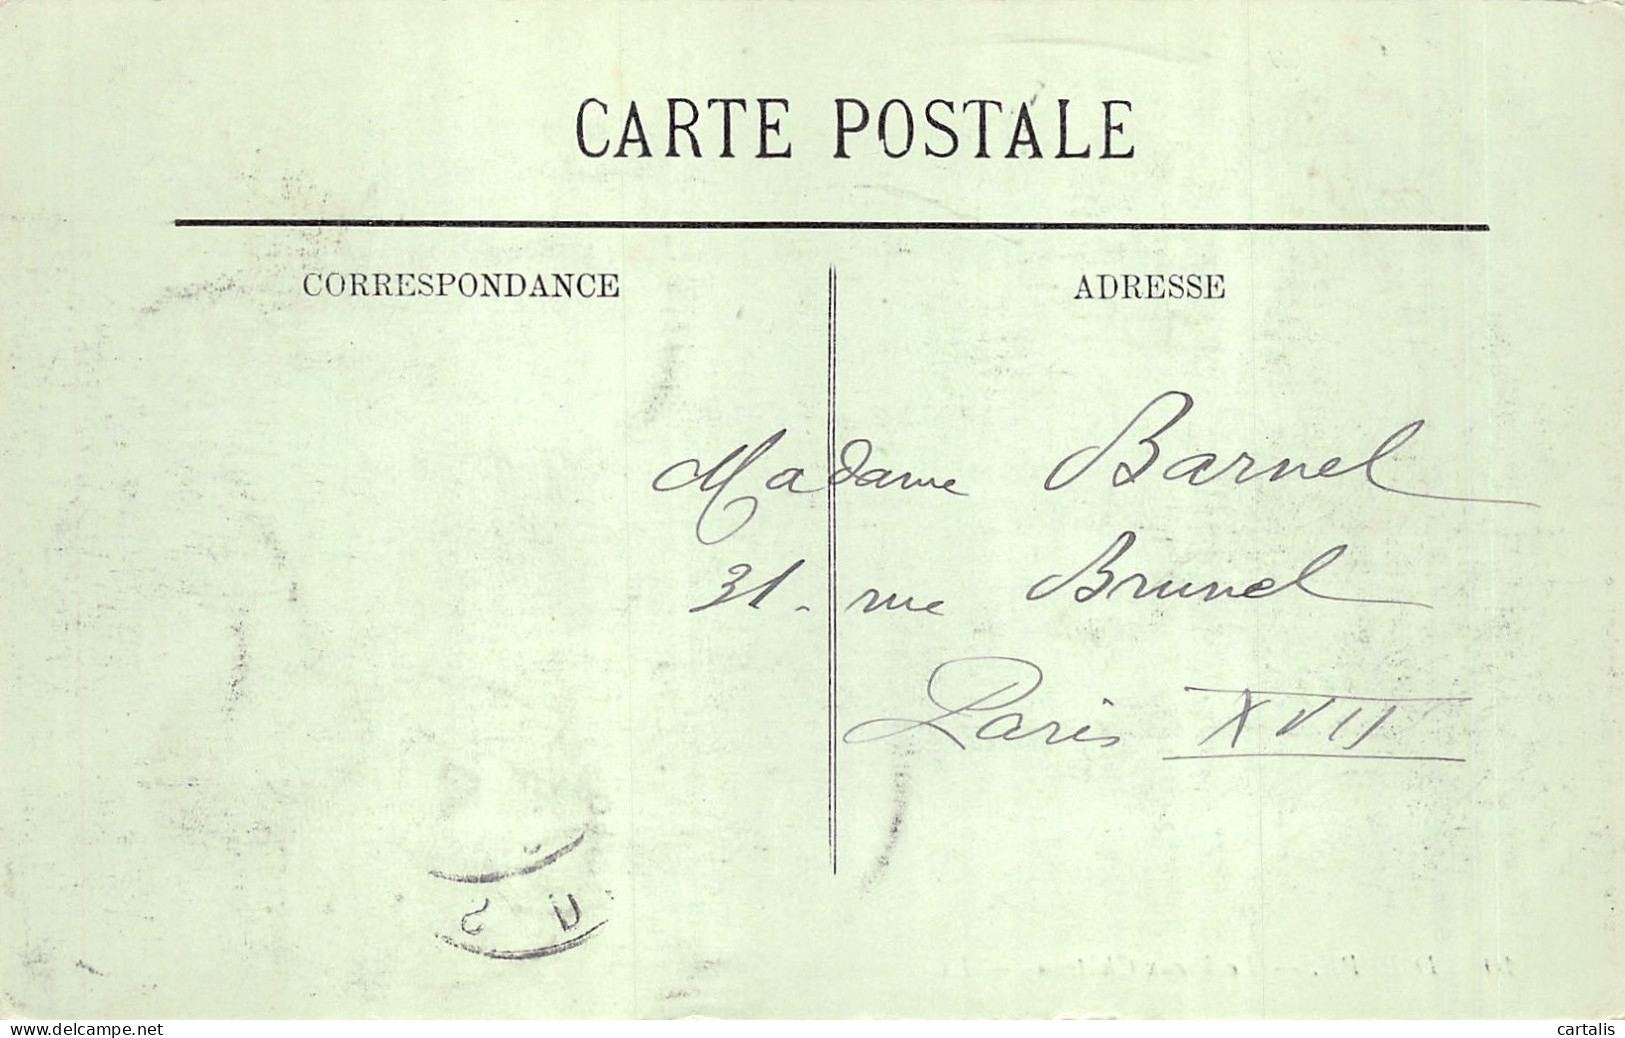 CARTE POSTALE
CORRESPONDANCE
ADRESSE
Madame Barnel
31. rue Brunel
Paris XVII
www.delcampe.net
cartalis